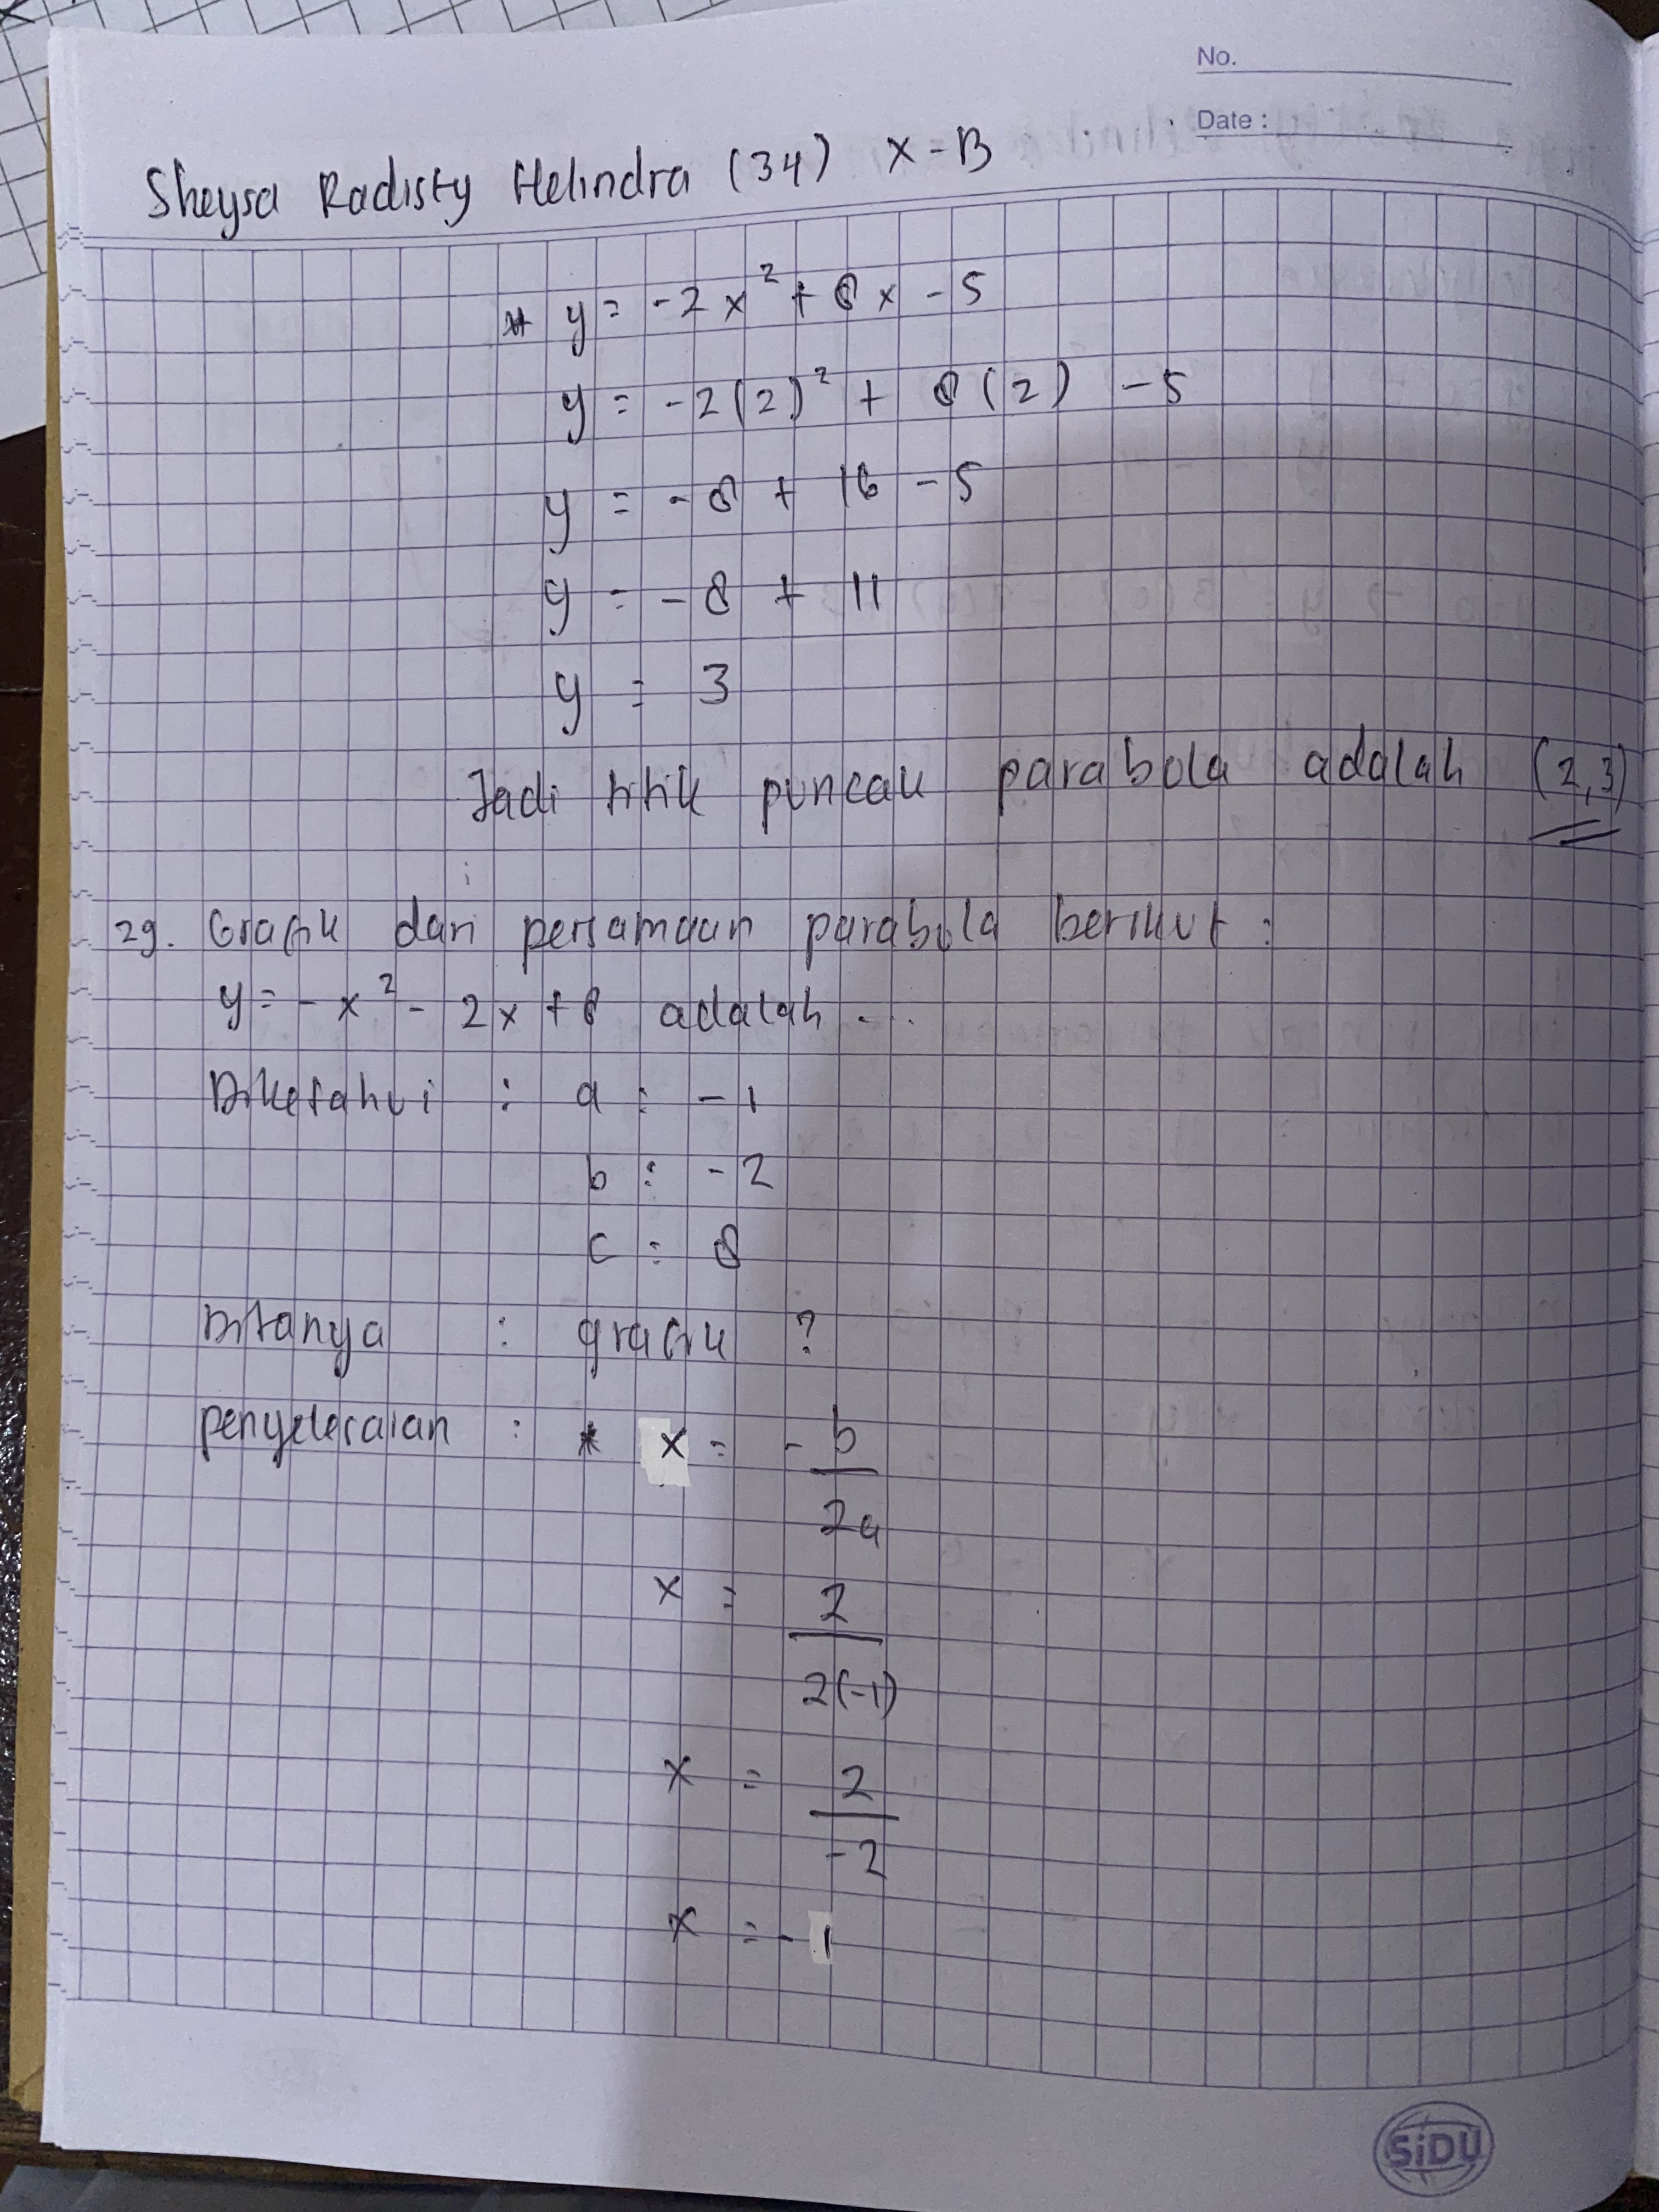 No.
Date :
Sheysa Radisty Helindra (34) X-B
* y = -2x² + 8x - 5
y = -2(2)² + 8(2) - 5
y = -8 + 16 - 5
y = -8 + 11
y = 3
Jadi titik puncak parabola adalah (2,3)
29. Grafik dari persamaan parabola berikut :
y = -x² - 2x + 8 adalah ...
Diketahui : a : -1
b : -2
c : 8
Ditanya : grafik ?
penyelesaian : * x = - b
2a
x = 2
2(-1)
x = 2
-2
x = -1
SiDU